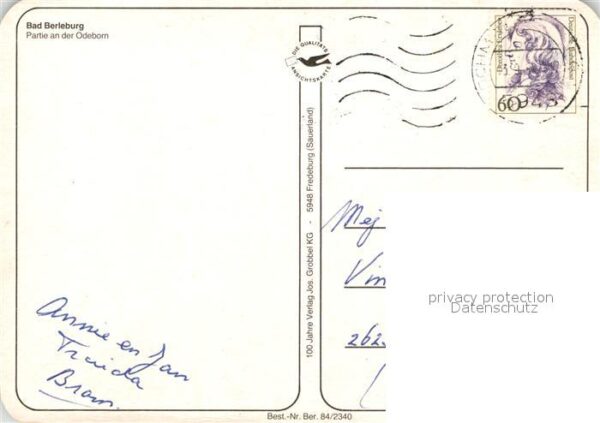 Bad Berleburg
Partie an der Odeborn
DIE QUALITÄTS
ANSICHTSKARTE
Deutsche Bundespost
60
100 Jahre Verlag Jos. Grobbel KG - 5948 Fredeburg (Sauerland)
Mej
Vin
262
privacy protection
Datenschutz
Annie en Jan
Traida
Bram
Best.-Nr. Ber. 84/2340